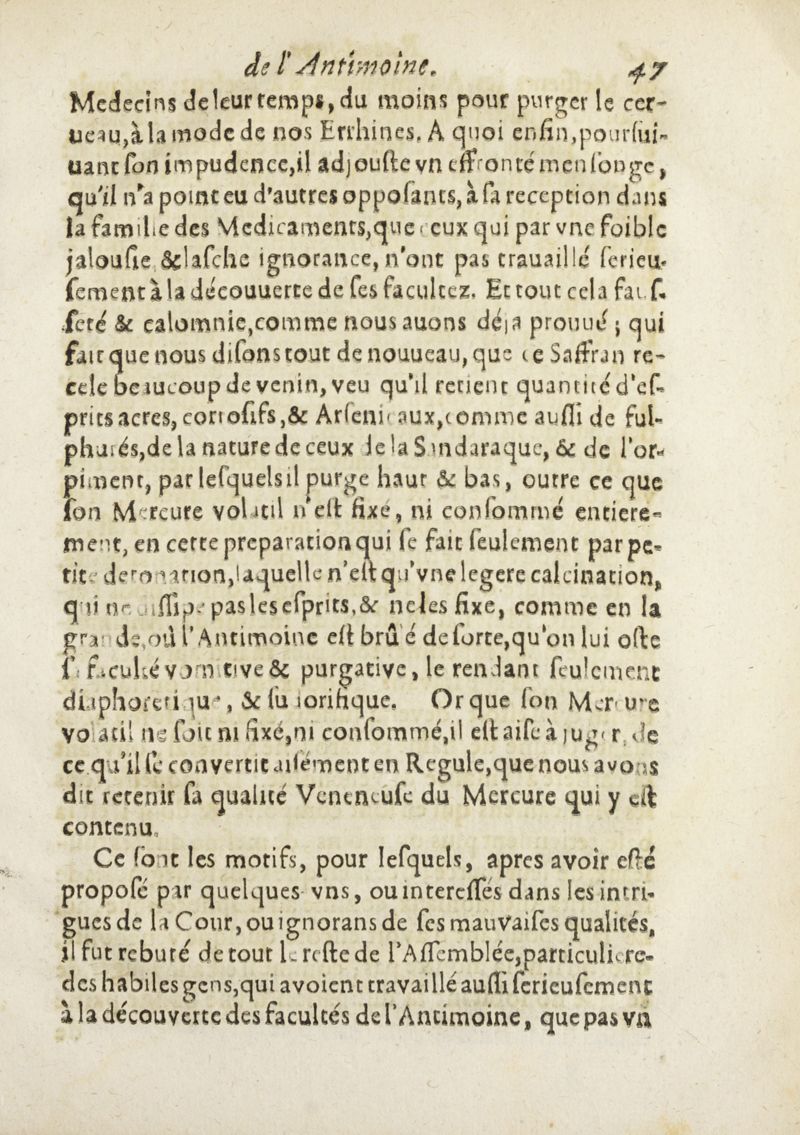 de l'Antimoine. 47
Medecins de leur temps, du moins pour purger le cer-
ueau, à la mode de nos Errhines. A quoi enfin, pourſui-
uant ſon impudence, il adjouſte vn effronté menſonge,
qu'il n'a point eu d'autres oppoſants, à ſa reception dans
la famille des Medicaments, que ceux qui par vne foible
jalouſie & laſche ignorance, n'ont pas trauaillé ſerieu-
ſement à la découuerte de ſes facultez. Et tout cela fauſ-
ſeté & calomnie, comme nous auons déja prouué ; qui
fait que nous diſons tout de nouueau, que ce Saffran re-
cele beaucoup de venin, veu qu'il retient quantité d'eſ-
prits acres, corroſifs, & Arſenicaux, comme auſſi de ſul-
phurés, de la nature de ceux de la Sandaraque, & de l'or-
piment, par leſquels il purge haut & bas, outre ce que
ſon Mercure volatil n'eſt fixé, ni conſommé entiere-
ment, en cette preparation qui ſe fait ſeulement par pe-
tite detonation, laquelle n'eſt qu'vne legere calcination,
qui ne diſſipe pas les eſprits, & ne les fixe, comme en la
grande, où l'Antimoine eſt brûlé de ſorte, qu'on lui oſte
ſa faculté vomitive & purgative, le rendant ſeulement
diaphoretique, & ſudorifique. Or que ſon Mercure
volatil ne ſoit ni fixé, ni conſommé, il eſt aiſé à juger, de
ce qu'il ſe convertit aiſément en Regule, que nous avons
dit retenir ſa qualité Veneneuſe du Mercure qui y eſt
contenu.
Ce ſont les motifs, pour leſquels, apres avoir eſté
propoſé par quelques vns, ou intereſſés dans les intri-
gues de la Cour, ou ignorans de ſes mauvaiſes qualités,
il fut rebuté de tout le reſte de l'Aſſemblée, particuliere-
des habiles gens, qui avoient travaillé auſſi ſerieuſement
à la découverte des facultés de l'Antimoine, que pas vn